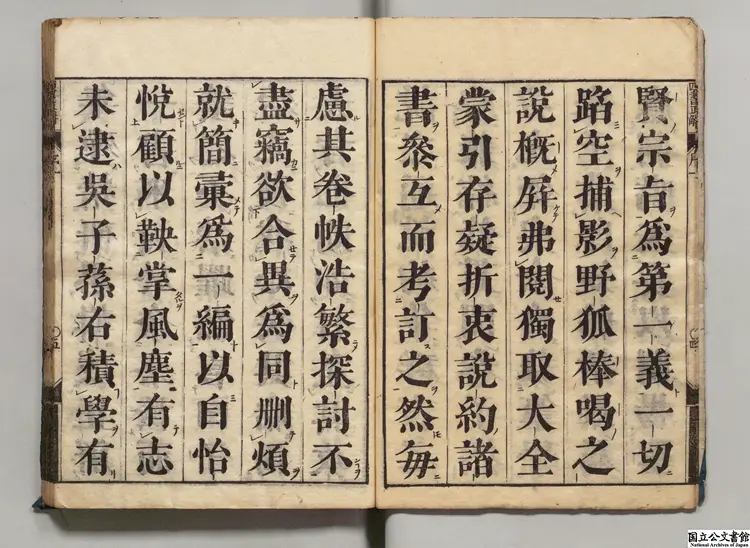 賢宗旨爲第一義一切
蹈空捕影野狐棒喝之
說概屛弗閱獨取大全
蒙引存疑折衷說約諸
書參互而考訂之然每
慮其卷帙浩繁探討不
盡竊欲合異爲同刪煩
就簡彙爲一編以自怡
悅顧以鞅掌風塵有志
未逮吳子蓀右積學有
国立公文書館
National Archives of Japan